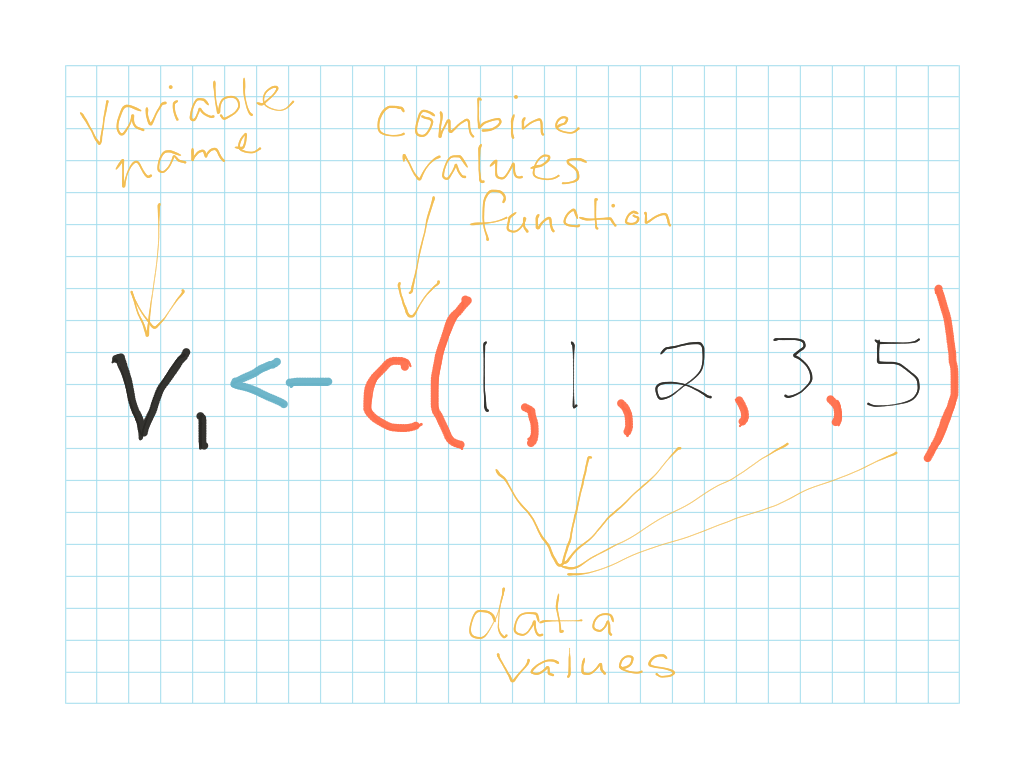 variable
name
combine
values
function
V₁ <- c(1,1,2,3,5)
data
values